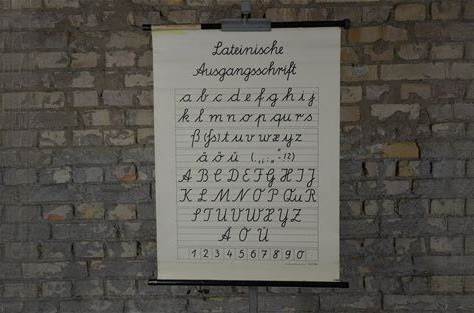 Lateinische
Ausgangsschrift
a b c d e f g h i j
k l m n o p qu r s
ß (ſs) t u v w x y z
ä ö ü (.,;:„"-!?)
A B C D E F G H I J
K L M N O P Qu R
S T U V W X Y Z
Ä Ö Ü
1 2 3 4 5 6 7 8 9 0